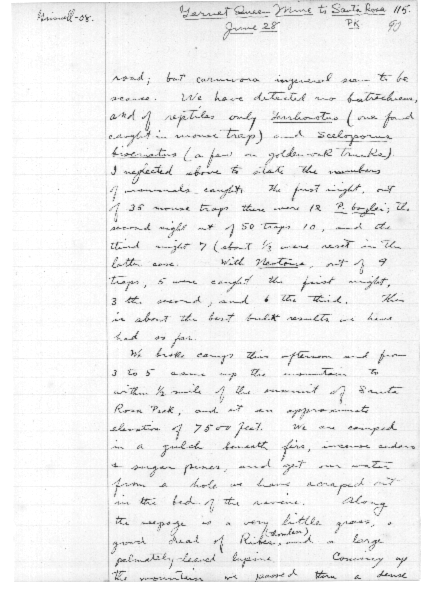 Grinnell-08.
Garnet Queen Mine to Santa Rosa Pk 115.
June 28
road; but carnivora in general seem to be
scarce. We have detected no batrachians,
and of reptiles only Gerrhonotus (one found
caught in mouse trap) and Sceloporus
biseriatus (a few on goldenoak trunks).
I neglected above to state the numbers
of mammals caught. The first night, out
of 35 mouse traps there were 12 P. boylei; the
second night out of 50 traps 10, and the
third night 7 (about 1/2 were reset in the
latter case. With Neotoma, out of 9
traps, 5 were caught the first night,
3 the second, and 6 the third. This
is about the best bulk results we have
had so far.
We broke camp this afternoon and from
3 to 5 came up the mountain to
within 1/2 mile of the summit of Santa
Rosa Peak, and at an approximate
elevation of 7500 feet. We are camped
in a gulch beneath firs, incense cedars
& sugar pines, and get our water
from a hole we have scraped out
in the bed of the ravine. Along
the seepage is a very little grass, a
good deal of Ribes (thornless), and a large
palmately-leaved lupine. Coming up
the mountain we passed thru a dense